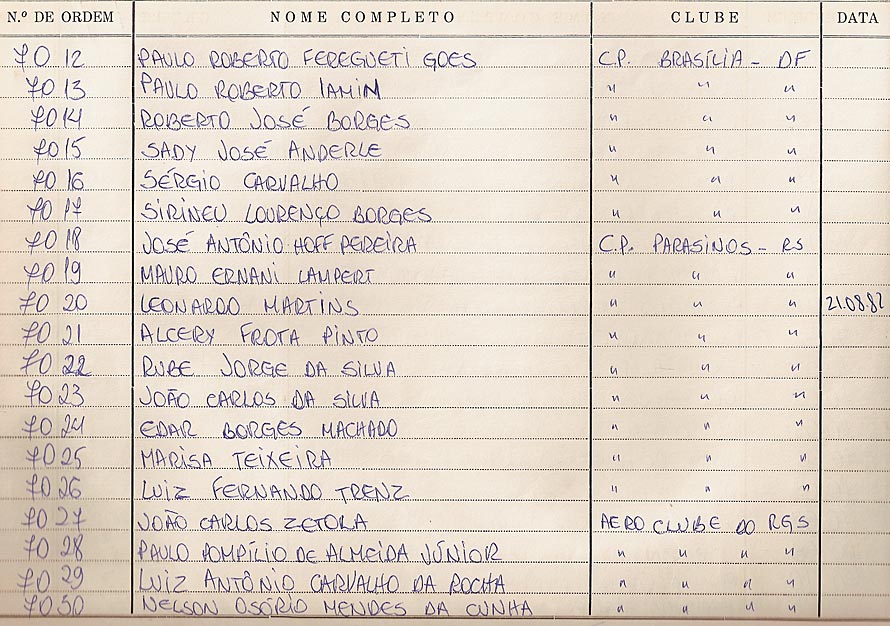 N.º DE ORDEM NOME COMPLETO CLUBE DATA
7012 PAULO ROBERTO FEREGUETI GOES C.P. BRASÍLIA - DF
7013 PAULO ROBERTO IAMIN " " "
7014 ROBERTO JOSÉ BORGES " " "
7015 SADY JOSÉ ANDERLE " " "
7016 SÉRGIO CARVALHO " " "
7017 SIRINEU LOURENÇO BORGES " " "
7018 JOSÉ ANTÔNIO HOFF PEREIRA C.P. PARASINOS - RS
7019 MAURO ERNANI LAMPERT " " "
7020 LEONARDO MARTINS " " " 21.08.82
7021 ALCERY FROTA PINTO " " "
7022 RUBE JORGE DA SILVA " " "
7023 JOÃO CARLOS DA SILVA " " "
7024 EDAR BORGES MACHADO " " "
7025 MARISA TEIXEIRA " " "
7026 LUIZ FERNANDO TRENZ " " "
7027 JOÃO CARLOS ZETOLA AERO CLUBE DO RGS
7028 PAULO POMPÍLIO DE ALMEIDA JÚNIOR " " " "
7029 LUIZ ANTÔNIO CARVALHO DA ROCHA " " " "
7030 NELSON OSÓRIO MENDES DA CUNHA " " " "